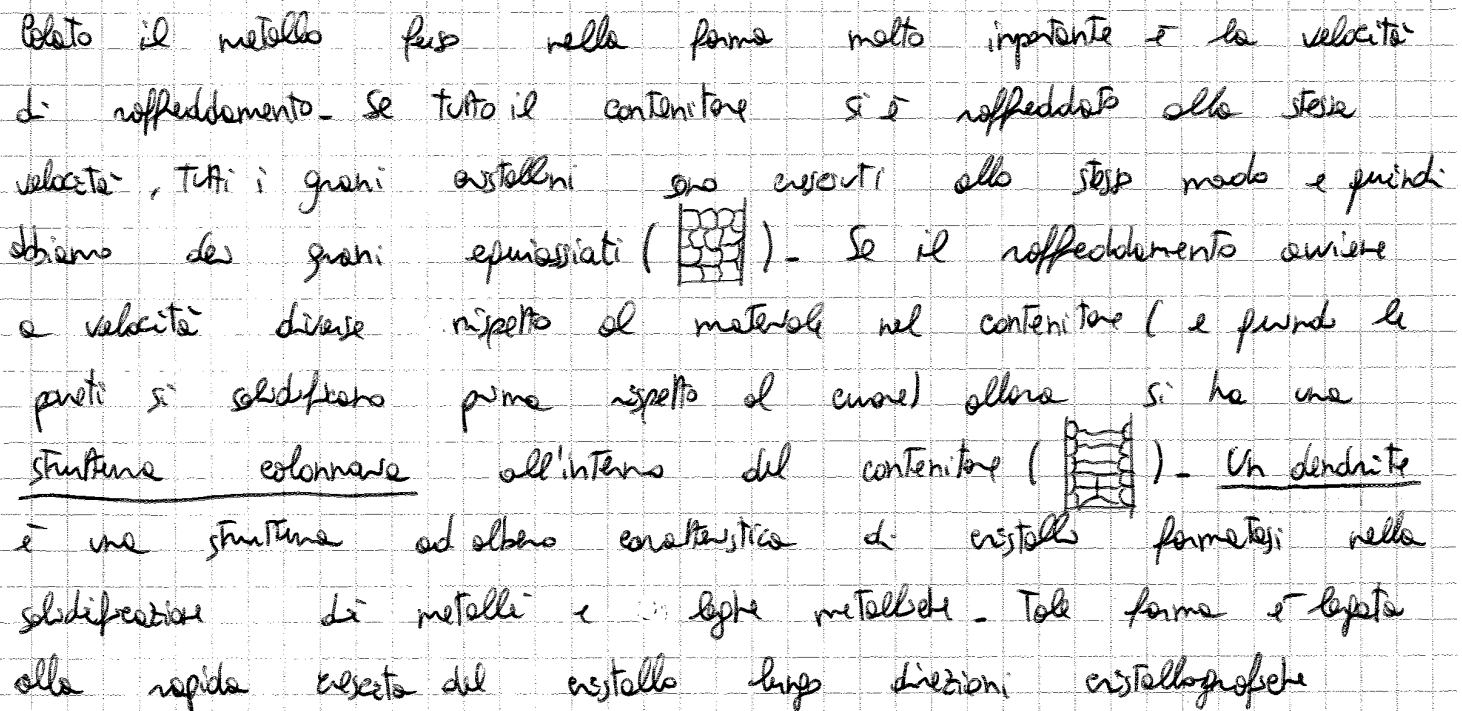 Colato il metallo fuso nella forma molto importante è la velocità
di raffreddamento. Se tutto il contenitore si è raffreddato alla stessa
velocità, tutti i grani cristallini sono cresciuti allo stesso modo e quindi
abbiamo dei grani equiassiati ( ). Se il raffreddamento avviene
a velocità diverse rispetto al materiale nel contenitore (e quindi le
pareti si solidificano prima rispetto al cuore) allora si ha una
struttura colonnare all'interno del contenitore ( ). Un dendrite
è una struttura ad albero caratteristica di cristallo formatasi nella
solidificazione di metalli e leghe metalliche. Tale forma è legata
alla rapida crescita del cristallo lungo direzioni cristallografiche